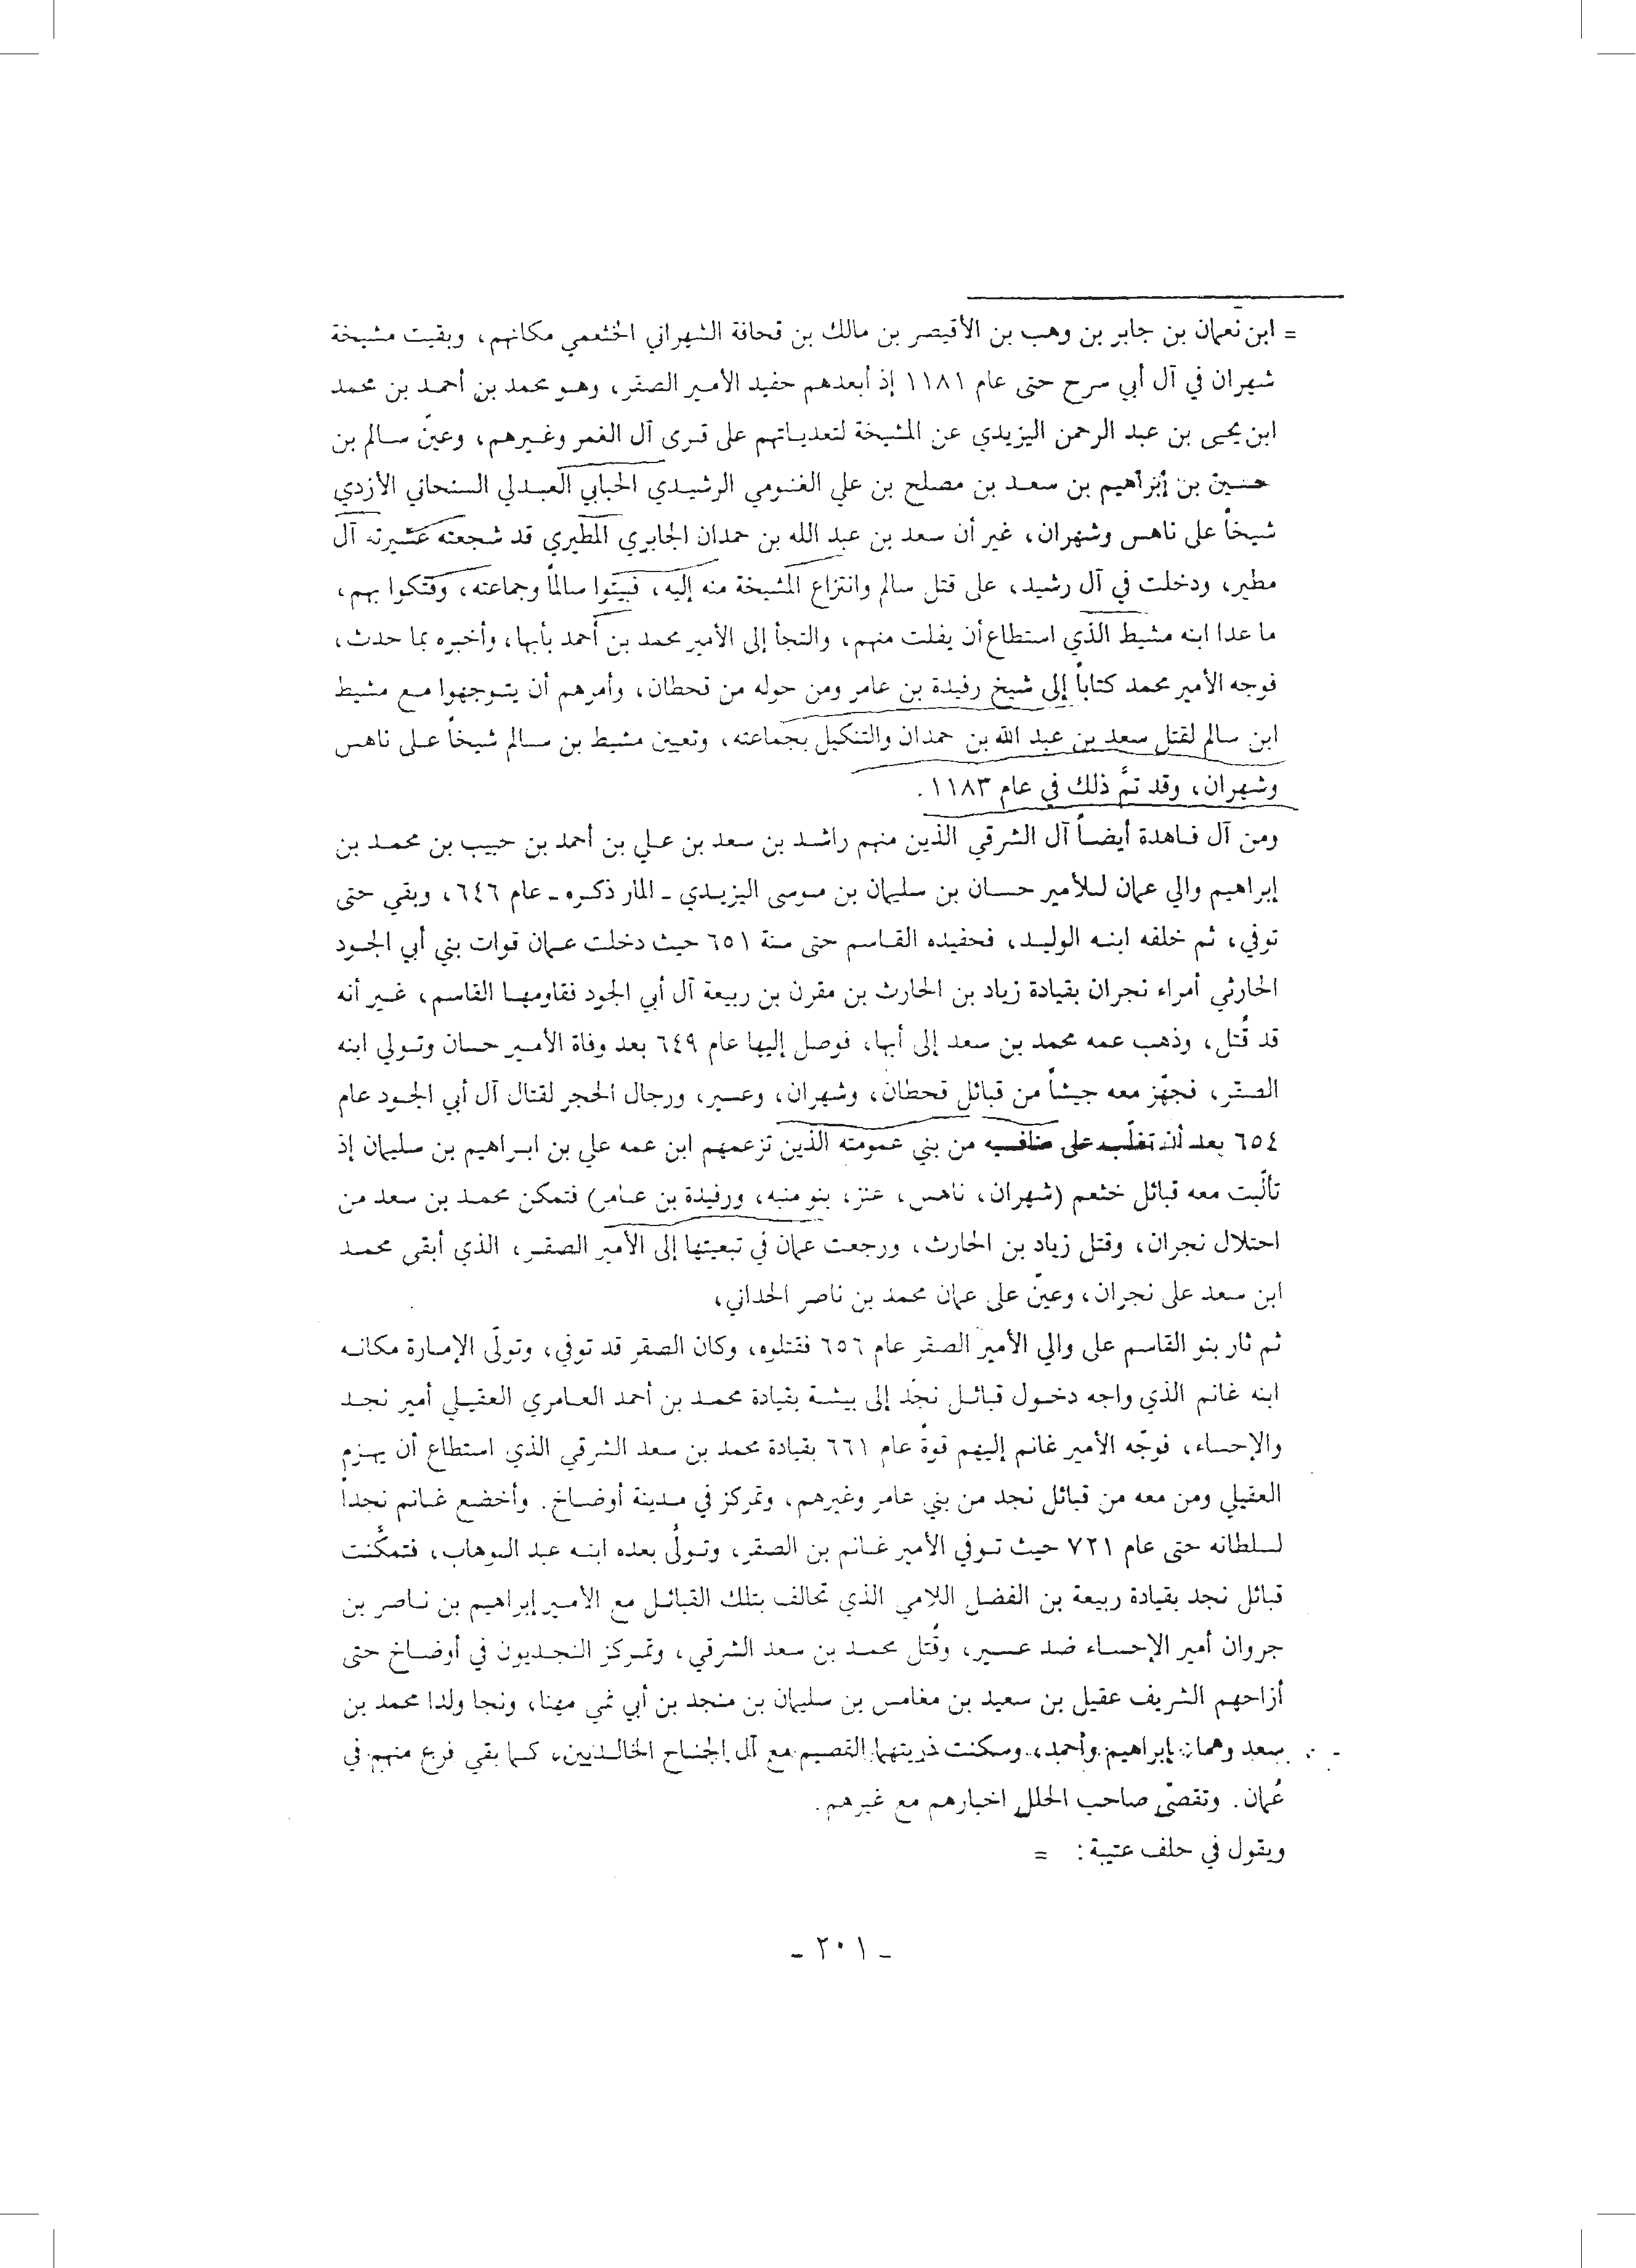 = ابن نعمان بن جابر بن وهب بن الأقيصر بن مالك بن قحافة الشهراني الخثعمي مكانهم، وبقيت مشيخة
شهران في آل أبي سرح حتى عام ١١٨١ إذ أبعدهم حفيد الأمير الصقر، وهو محمد بن أحمد بن محمد
ابن يحيى بن عبد الرحمن اليزيدي عن المشيخة لتعدياتهم على قرى آل الغمر وغيرهم، وعينّ سالم بن
حسين بن إبراهيم بن سعد بن مصلح بن علي الغنومي الرشيدي الحبابي العبدلي السنحاني الأزدي
شيخاً على ناهس وشهران، غير أن سعد بن عبد الله بن حمدان الجابري المطيري قد شجعته عشيرته آل
مطير، ودخلت في آل رشيد، على قتل سالم وانتزاع المشيخة منه إليه، فبيتوا سالماً وجماعته، وفتكوا بهم،
ما عدا ابنه مشيط الذي استطاع أن يفلت منهم، والتجأ إلى الأمير محمد بن أحمد بأبها، وأخبره بما حدث،
فوجه الأمير محمد كتاباً إلى شيخ رفيدة بن عامر ومن حوله من قحطان، وأمرهم أن يتوجهوا مع مشيط
ابن سالم لقتل سعد بن عبد الله بن حمدان والتنكيل بجماعته، وتعيين مشيط بن سالم شيخاً على ناهس
وشهران، وقد تمَّ ذلك في عام ١١٨٣.
ومن آل فاهدة أيضاً آل الشرقي الذين منهم راشد بن سعد بن علي بن أحمد بن حبيب بن محمد بن
إبراهيم والي عمان للأمير حسان بن سليمان بن موسى اليزيدي ـ المار ذكره ـ عام ٦٤٦، وبقي حتى
توفي، ثم خلفه ابنه الوليد، فحفيده القاسم حتى سنة ٦٥١ حيث دخلت عمان قوات بني أبي الجود
الحارثي أمراء نجران بقيادة زياد بن الحارث بن مقرن بن ربيعة آل أبي الجود فقاومها القاسم، غير أنه
قد قُتل، وذهب عمه محمد بن سعد إلى أبها، فوصل إليها عام ٦٤٩ بعد وفاة الأمير حسان وتولي ابنه
الصقر، فجهّز معه جيشاً من قبائل قحطان، وشهران، وعسير، ورجال الحجر لقتال آل أبي الجود عام
٦٥٤ بعد أن تغلّب على منافسيه من بني عمومته الذين تزعمهم ابن عمه علي بن ابراهيم بن سليمان إذ
تألّبت معه قبائل خثعم (شهران، ناهس، عنز، بنو منبه، ورفيدة بن عامر) فتمكن محمد بن سعد من
احتلال نجران، وقتل زياد بن الحارث، ورجعت عمان في تبعيتها إلى الأمير الصقر، الذي أبقى محمد
ابن سعد على نجران، وعينّ على عمان محمد بن ناصر الحداني،
ثم ثار بنو القاسم على والي الأمير الصقر عام ٦٥٦ فقتلوه، وكان الصقر قد توفي، وتولّى الإمارة مكانه
ابنه غانم الذي واجه دخول قبائل نجد إلى بيشة بقيادة محمد بن أحمد العامري العقيلي أمير نجد
والإحساء، فوجّه الأمير غانم إليهم قوةً عام ٦٦١ بقيادة محمد بن سعد الشرقي الذي استطاع أن يهزم
العقيلي ومن معه من قبائل نجد من بني عامر وغيرهم، وتمركز في مدينة أوضاخ. وأخضع غانم نجداً
لسلطانه حتى عام ٧٢١ حيث توفي الأمير غانم بن الصقر، وتولّى بعده ابنه عبد الوهاب، فتمكّنت
قبائل نجد بقيادة ربيعة بن الفضل اللامي الذي تحالف بتلك القبائل مع الأمير إبراهيم بن ناصر بن
جروان أمير الإحساء ضد عسير، وقُتل محمد بن سعد الشرقي، وتمركز النجديون في أوضاخ حتى
أزاحهم الشريف عقيل بن سعيد بن مغامس بن سليمان بن منجد بن أبي نمي مهنا، ونجا ولدا محمد بن
سعد وهما: إبراهيم وأحمد، وسكنت ذريتهما القصيم مع آل الجناح الخالديين، كما بقي فرع منهم في
عُمان. وتقصّى صاحب الحلل اخبارهم مع غيرهم.
ويقول في حلف عتيبة: =
ـ ٢٠١ ـ